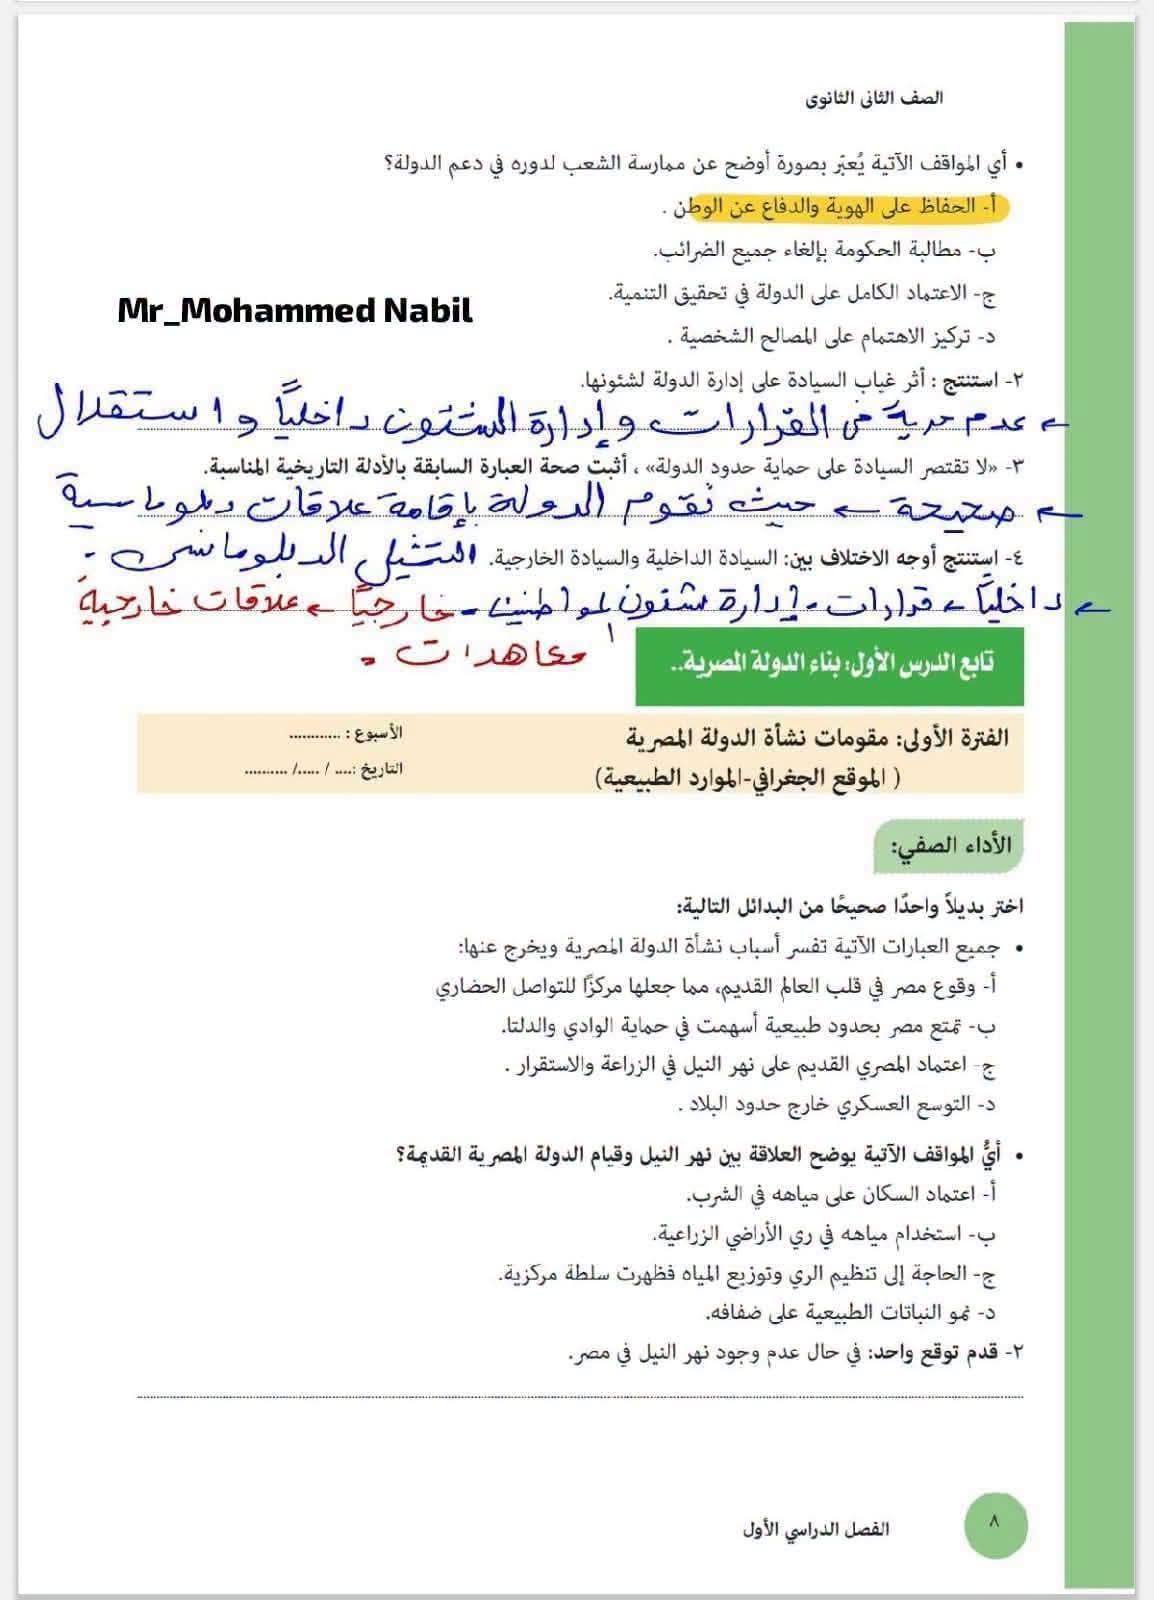 الصف الثانى الثانوى
• أي المواقف الآتية يُعبّر بصورة أوضح عن ممارسة الشعب لدوره في دعم الدولة؟
أ- الحفاظ على الهوية والدفاع عن الوطن .
ب- مطالبة الحكومة بإلغاء جميع الضرائب.
ج- الاعتماد الكامل على الدولة في تحقيق التنمية.
Mr_Mohammed Nabil
د- تركيز الاهتمام على المصالح الشخصية .
٢- استنتج : أثر غياب السيادة على إدارة الدولة لشئونها.
← عدم حرية في القرارات وإدارة الشئون داخلياً واستقلال
٣- «لا تقتصر السيادة على حماية حدود الدولة» ، أثبت صحة العبارة السابقة بالأدلة التاريخية المناسبة.
← صحيحة ← حيث تقوم الدولة بإقامة علاقات دبلوماسية
٤- استنتج أوجه الاختلاف بين: السيادة الداخلية والسيادة الخارجية.
التمثيل الدبلوماسى .
← داخلياً ← قرارات - إدارة شئون المواطنين - خارجياً ← علاقات خارجية
معاهدات .
تابع الدرس الأول: بناء الدولة المصرية..
الفترة الأولى: مقومات نشأة الدولة المصرية
الأسبوع : ............
( الموقع الجغرافي-الموارد الطبيعية)
التاريخ :.... / ...../ ..........
الأداء الصفي:
اختر بديلاً واحدًا صحيحًا من البدائل التالية:
• جميع العبارات الآتية تفسر أسباب نشأة الدولة المصرية ويخرج عنها:
أ- وقوع مصر في قلب العالم القديم، مما جعلها مركزًا للتواصل الحضاري
ب- تمتع مصر بحدود طبيعية أسهمت في حماية الوادي والدلتا.
ج- اعتماد المصري القديم على نهر النيل في الزراعة والاستقرار .
د- التوسع العسكري خارج حدود البلاد .
• أيُّ المواقف الآتية يوضح العلاقة بين نهر النيل وقيام الدولة المصرية القديمة؟
أ- اعتماد السكان على مياهه في الشرب.
ب- استخدام مياهه في ري الأراضي الزراعية.
ج- الحاجة إلى تنظيم الري وتوزيع المياه فظهرت سلطة مركزية.
د- نمو النباتات الطبيعية على ضفافه.
٢- قدم توقع واحد: في حال عدم وجود نهر النيل في مصر.
الفصل الدراسي الأول
٨